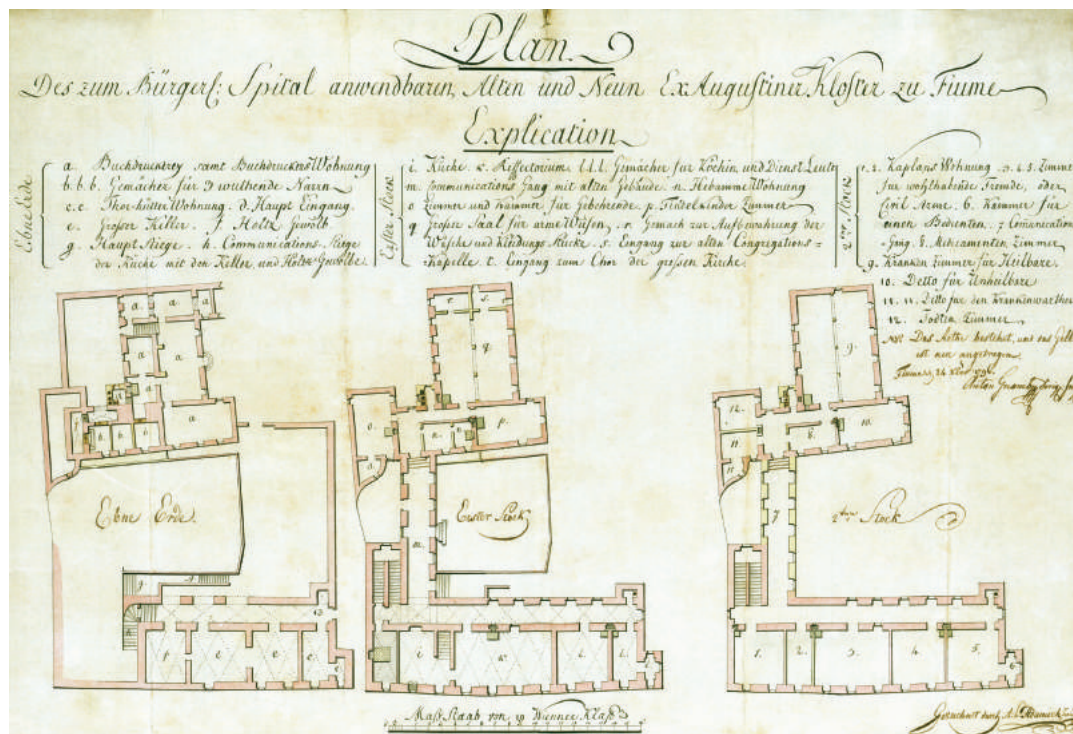 Plan
Des zum Bürgerl: Spital anwendbaren, Alten und Neun Ex Augustiner Kloster zu Fiume
Explication
Ebne Erde
a. Buchdruckerey samt Buchdruckers Wohnung
b.b.b. Gemächer für 3 wüthende Narrn
c.c. Thor-hütter Wohnung. d. Haupt Eingang.
e. Grosser Keller. f. Holtz Gewölb.
g. Haupt Stiege. h. Communications-Stiege
der Küche mit den Keller, und Holtz Gewölbe.
Erster Stock
i. Küche. k. Reffectorium. l.l.l. Gemächer für Köchin, und Dienst Leute
m. Communications Gang mit alten Gebäude. n. Hebamme Wohnung
o. Zimmer und Kammer für Gebehrende. p. Findelkinder Zimmer
q. Grosser Saal für arme Waisen. r. Gemach zur Aufbewahrung der
Wäsche und Kleidungs Stücke. s. Eingang zur alten Congregations=
Kapelle. t. Eingang zum Chor der grossen Kirche.
2ter Stock
1. 2. Kaplans Wohnung. 3. 4. 5. Zimmer
für wohlhabende Fremde, oder
Civil Arme. 6. Kammer für
einen Bedienten. 7. Comunications
Gang. 8. Medicamenten Zimmer
9. Kranken Zimmer für Heilbare.
10. Detto für Unheilbare
11. 11. Detto für den Krankenwarther
12. Todten Zimmer
NB. Das Rothe bestehet, und das Gelbe
ist neu angetragen.
Ebne Erde.
Erster Stock
2ter Stock
a. a. a a a. a
b. b. b
f. e. e c.
r. s. q. o. n. p. m. i. k. l. l.
9. 12. 11 8. 10. 7
1. 2. 3. 4. 5. 6
Maß Staab von 10 Wienner Klaft